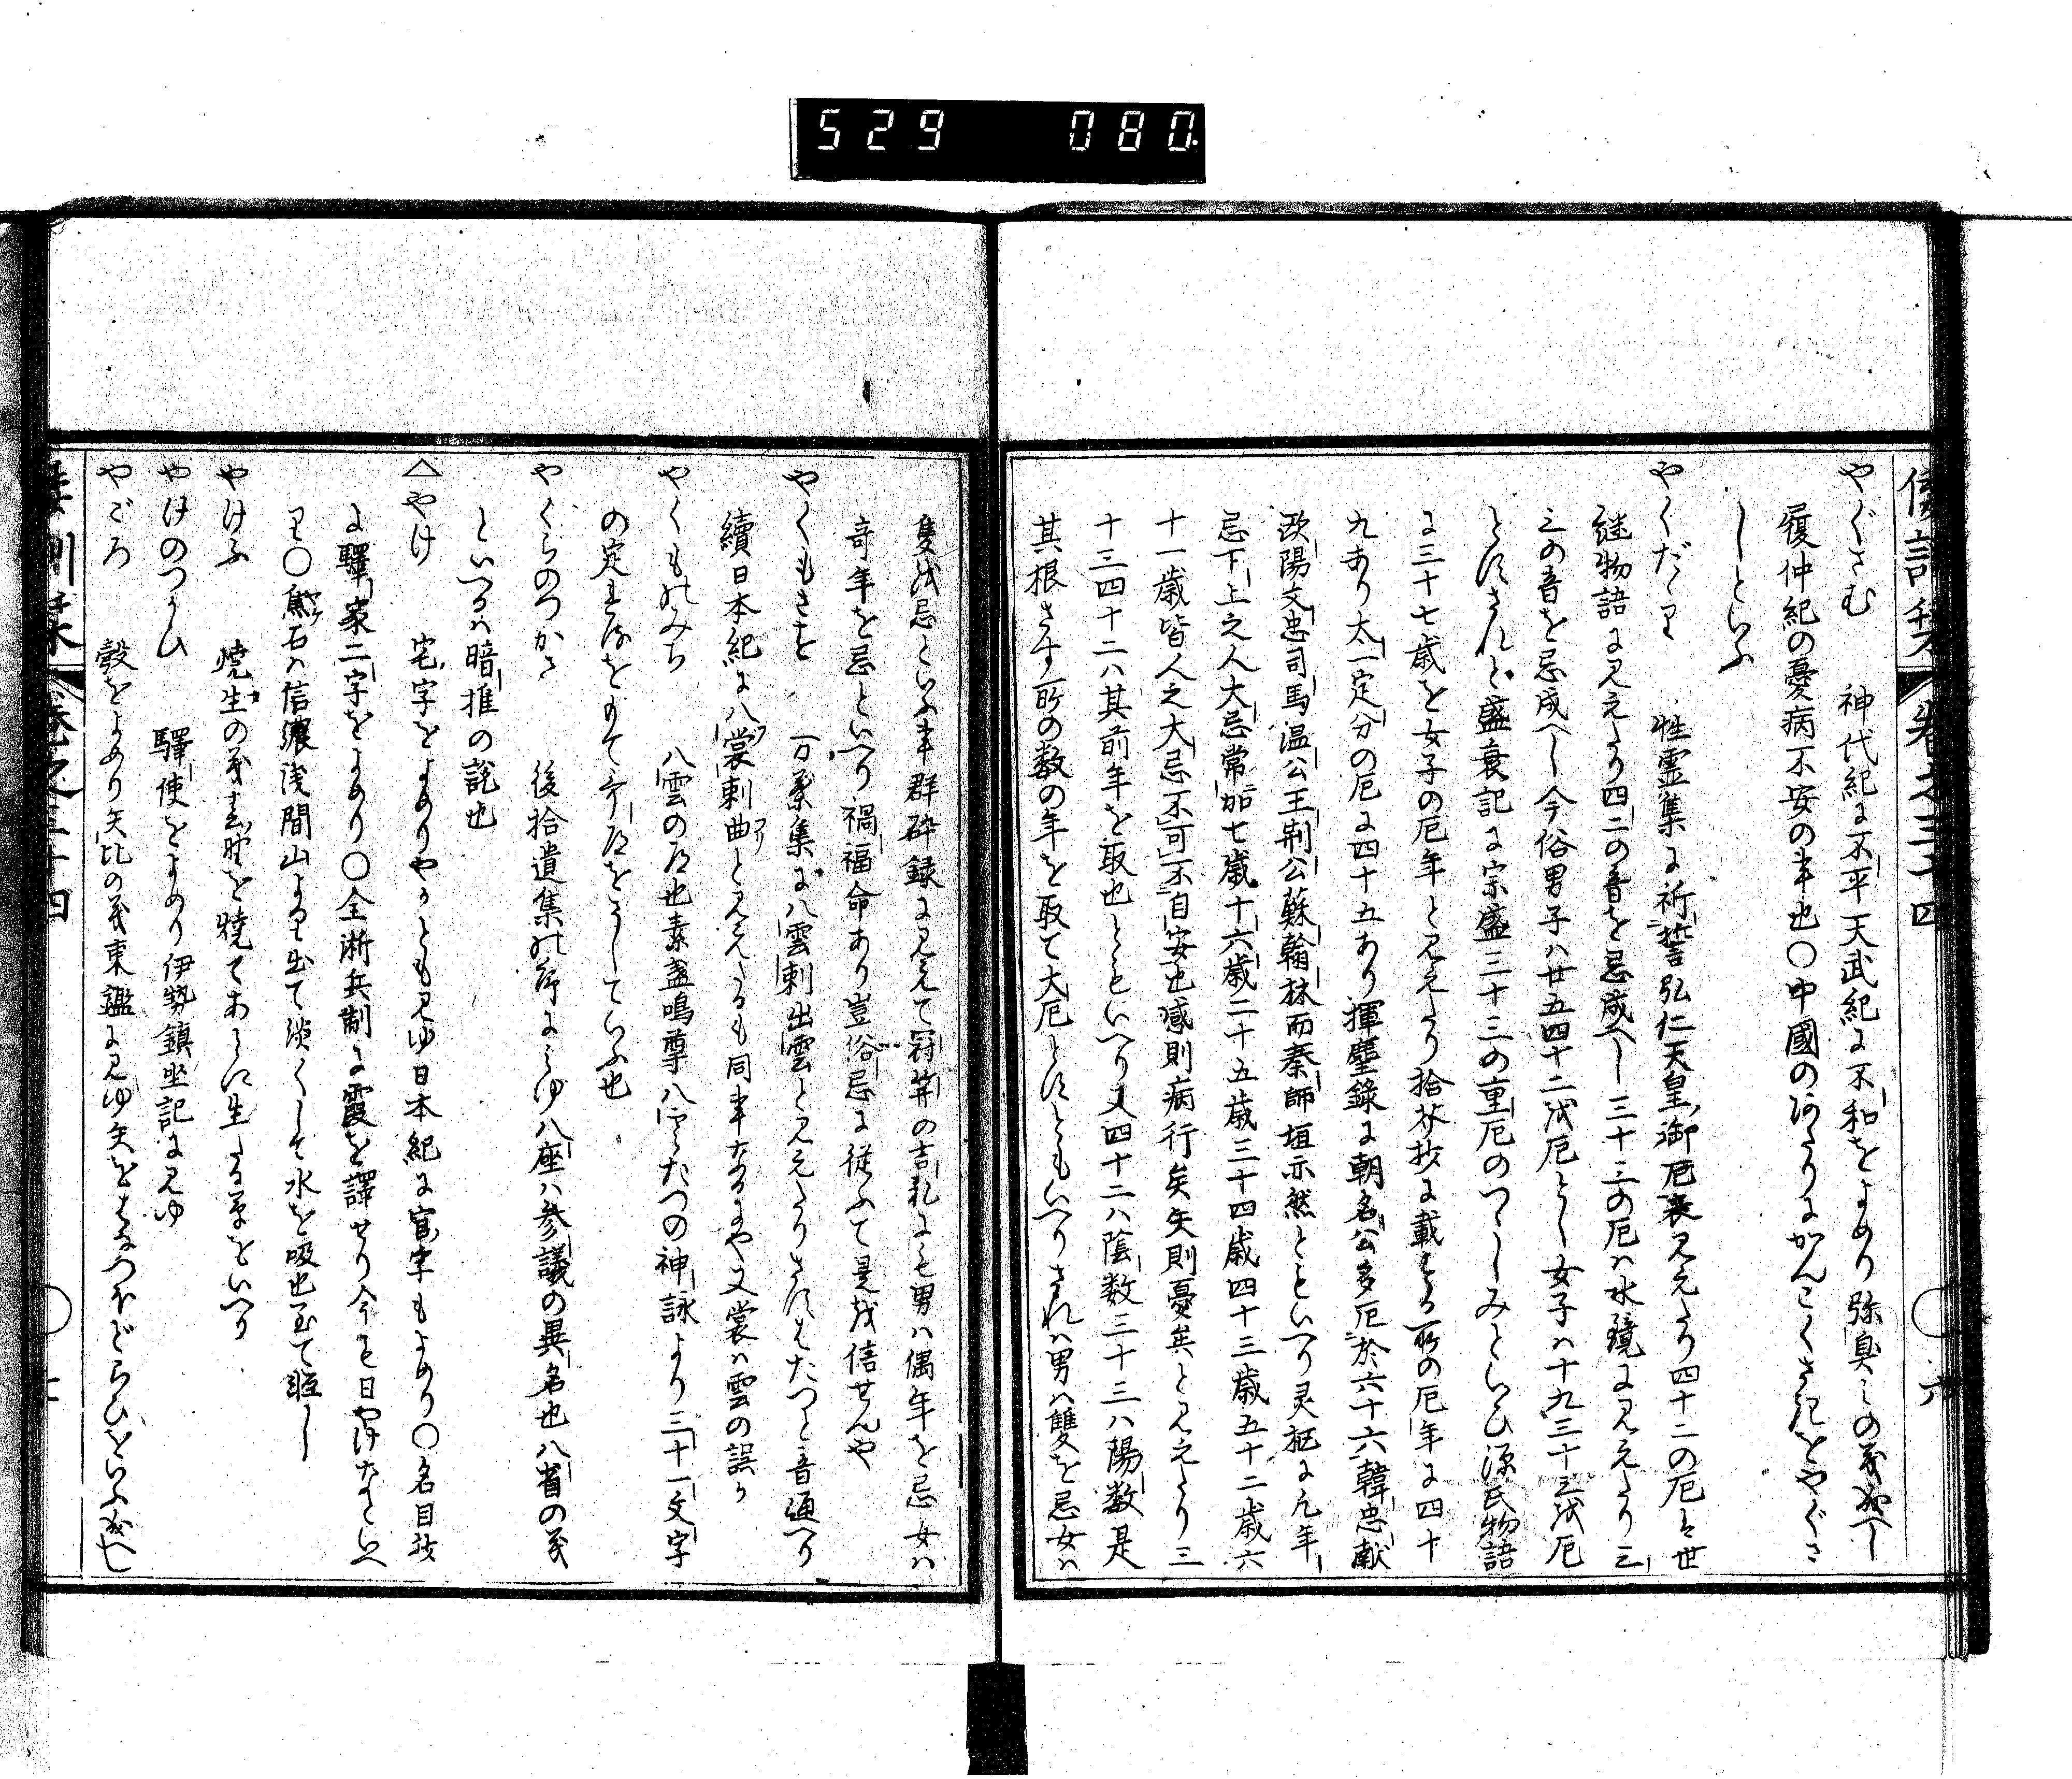 529 080
倭訓栞 卷之三十四 ○ 六
やぐさむ 神代紀に不平天武紀に不和をよめり弥臭しの義成へし
履仲紀の憂病不安の事也○中國の
しといふ
やくだゝり 性霊集に祈誓弘仁天皇御厄表見えたり四十二の厄は世
継物語に見えたり四二の音を忌成へし三十三の厄ハ水鏡に見えたり三
三の音を忌成へし今俗男子ハ廿五四十二を厄とし女子ハ十九三十三を厄
とすされど盛衰記に宗盛三十三の重厄のつゝしみといひ源氏物語
に三十七歳を女子の厄年と見えたり拾芥抄に載たる所の厄年に四十
九あり太一定分の厄に四十五あり揮塵錄に朝名公多厄於六十六韓忠献
欧陽文忠司馬温公王荊公蘇翰林而秦師垣亦然とといへり灵枢に凡年
忌下上之人大忌常加七歳十六歳二十五歳三十四歳四十三歳五十二歳六
十一歳皆人之大忌不可不自安也感則病行矣失則憂矣と見えたり三
十三四十二ハ其前年を取也ともいへり又四十二ハ陰数三十三ハ陽数是
其根さす所の数の年を取て大厄とすともいへりされハ男ハ雙を忌女ハ
隻を忌といふ事群砕録に見えて冠笄の吉礼にも男ハ偶年を忌女ハ
奇年を忌といへり禍福命あり豈俗忌に従ふて是を信せんや
やくもさす 万葉集に八雲刺出雲と見えたりさすはたつと音通へり
續日本紀に八裳刺曲と見えたるも同事なるにや又裳ハ雲の誤り
やくものみち 八雲の道也素盞嗚尊八雲たつの神詠より三十一文字
の定まれるをもて哥道をさしていふ也
やくらのつかさ 後拾遺集の序に見ゆ八座ハ参議の異名也八省の義
といへるハ暗推の説也
△やけ 宅字をよめりやかとも見ゆ日本紀に官字もよめり○名目抄
に驛家二字をよめり○全浙兵制に霞を譯せり今も日やけなといへ
り○焦石ハ信濃浅間山より出て淡くして水を吸也至て軽し
やけふ 燒生の義春野を燒てあとに生たる草をいへり
やけのつかひ 驛使をよめり伊勢鎮坐記に見ゆ
やごろ 彀をよめり矢比の義東鑑に見ゆ矢をはなつほどらひをいふ成へし
倭訓栞 卷之三十四 ○ 七